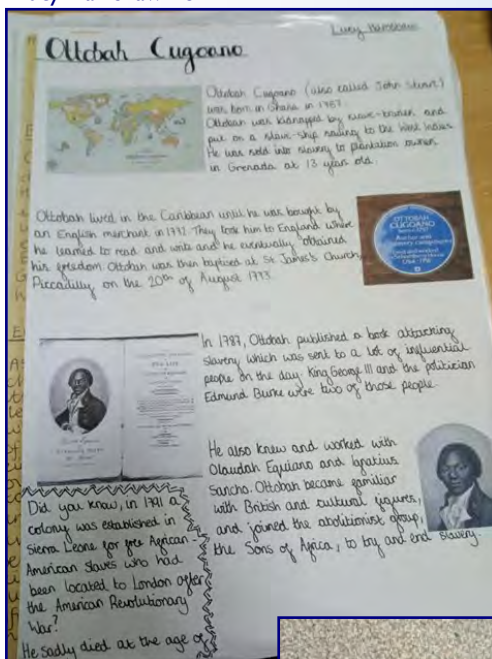 Ottobah Cugoano
Ottobah Cugoano (also called John Stuart)
was born in Ghana in 1757.
Ottobah was kidnapped by slave-traders and
put on a slave-ship sailing to the West Indies
He was sold into slavery to plantation owners
in Grenada at 13 year old.
Ottobah lived in the Caribbean until he was bought by
an English merchant in 1772. They took him to England where
he learned to read and write and he eventually obtained
his freedom. Ottobah was then baptised at St James's Church,
Piccadilly on the 20th of August 1773.
OTTOBAH
CUGOANO
In 1787, Ottobah published a book attacking
slavery which was sent to a lot of influential
people on the day. King George III and the politician
Edmund Burke were two of those people.
THE LIFE
He also knew and worked with
Olaudah Equiano and Ignatius
Sancho. Ottobah became familiar
with British and cultural figures,
and joined the abolitionist group,
the Sons of Africa, to try and end slavery.
Did you know, in 1791 a
colony was established in
Sierra Leone for free African-
American slaves who had
been located to London after
the American Revolutionary
War?
He sadly died at the age of